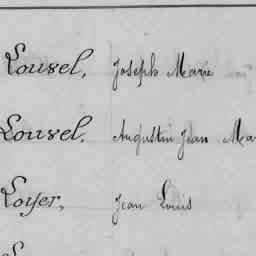 Lousel, Joseph Marie
Lousel, Augustin Jean Ma
Loyer, Jean Louis